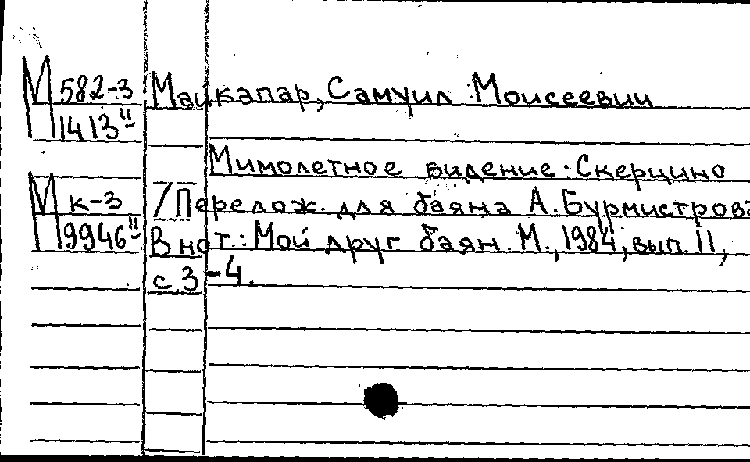 М 582-3 Майкапар, Самуил Моисеевич
1413¹¹
Мимолетное видение. Скерцино
М к-3 /Перелож. для баяна А.Бурмистрова
9946¹¹ В нот.: Мой друг баян. М., 1984, вып. 11,
с.3-4.